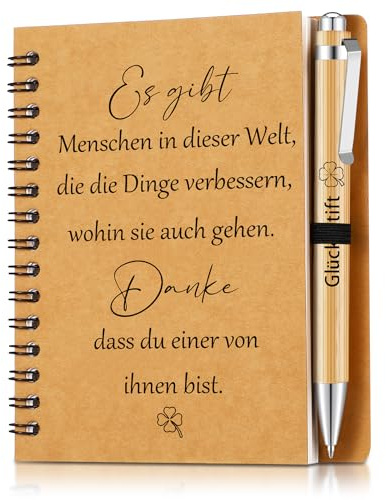 Es gibt
Menschen in dieser Welt,
die die Dinge verbessern,
wohin sie auch gehen.
Danke
dass du einer von
ihnen bist.
Glück tift